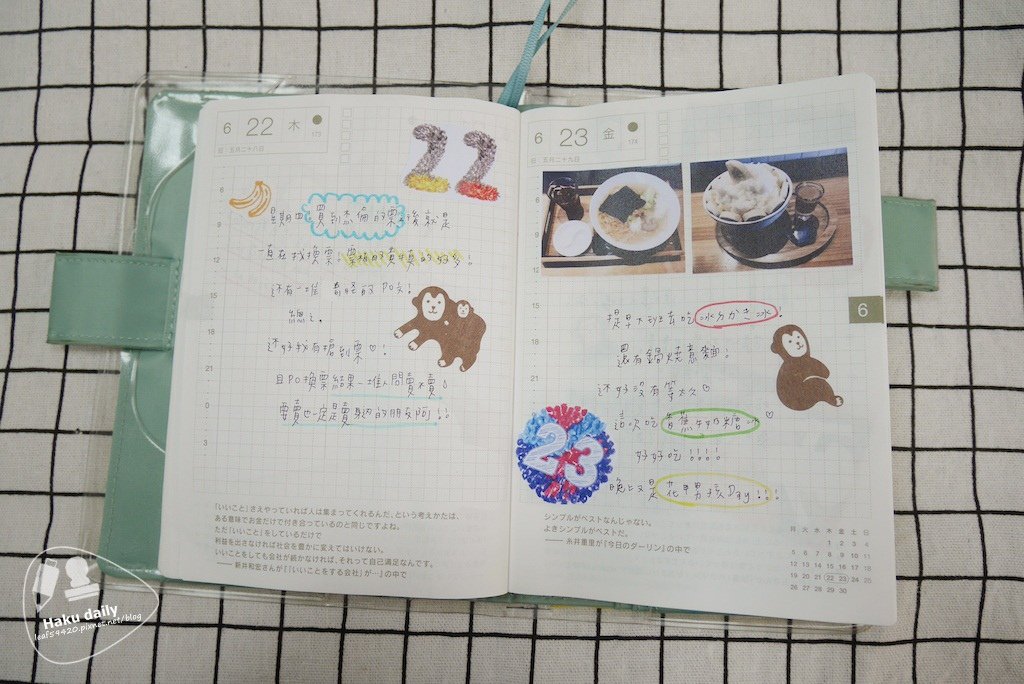 6 22 木
173
旧・五月二十八日
22
6
9
12
15
18
21
0
3
星期四買到杰倫的票後就是
一直在找換票!票根的真摯的好多!
還有一堆奇怪的po文!
總之
還好我有搶到票♡!
且PO換票結果一堆人問賣不賣
要賣也一定是賣身邊的朋友阿!!
「いいこと」さえやっていれば人は集まってくれるんだ、という考えかたは、
ある意味でお金だけで付き合っているのと同じですよね。
ただ「いいこと」をしているだけで
利益を出さなければ社会を豊かに変えてはいけない。
いいことをしても会社が続かなければ、それって自己満足なんです。
―― 新井和宏さんが『「いいことをする会社」が…』の中で
6 23 金
174
旧・五月二十九日
6
9
12
15
18
21
0
3
23
提早下班去吃冰刈かき氷!
還有鍋燒意麵!
還好沒有等太久♡
這次吃香蕉牛奶糖冰♡
好好吃!!!!
晚上又是花甲男孩Day!!!
シンプルがベストなんじゃない。
よきシンプルがベストだ。
―― 糸井重里が『今日のダーリン』の中で
6
月 火 水 木 金 土 日
1 2 3 4
5 6 7 8 9 10 11
12 13 14 15 16 17 18
19 20 21 22 23 24 25
26 27 28 29 30
Haku daily
leaf59420.pixnet.net/blog